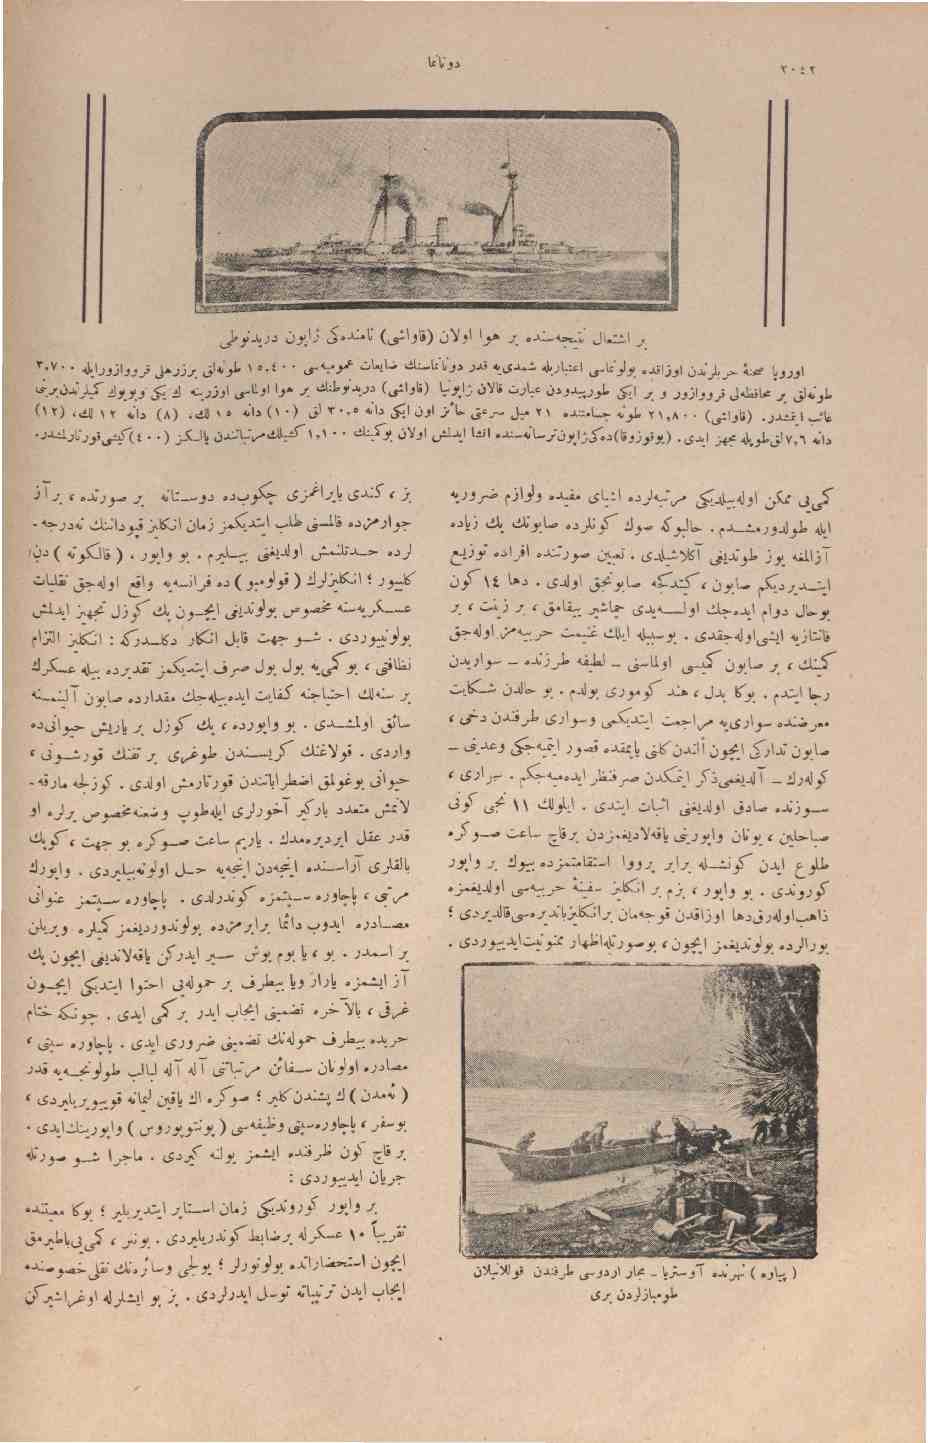 دونانما
٢٠٤٢
بر اشتعال نتیجه‌سنده بر هوا اولان (قاواشی) نامنده‌کی ژاپون دریدنوطی
اوروپا صحنهٔ حربلرندن اوزاقده بولونماسی اعتباریله شمدی‌یه قدر دونانماسنك ضایعات عمومیه‌سی ١٥,٤٠٠ طونه‌لق برزرهلی قرووازورایله ٣,٧٠٠
طونه‌لق بر محافظه‌لی قرووازور و بر ایکی طورپیدودن عبارت قالان ژاپونیا (قاواشی) دریدنوطنك بر هوا اولماسی اوزرینه اك یکی وبویوك کمیلرندن برینی
غائب ایتمشدر. (قاواشی) ٢١,٨٠٠ طونه جسامتنده ٢١ میل سرعتی حائز اون ایکی دانه ٣٠,٥ لق (١٠) دانه ١٥ لك، (٨) دانه ١٢ لك، (١٢)
دانه ٧,٦ لق طوپله مجهز ایدی. (یوقوزوقا) ده‌کی ژاپون ترسانه‌سنده انشا ایدلمش اولان بوکمینك ١,١٠٠ کشیلك مرتباتندن یالکز (٤٠٠) کیشی قورتارلمشدر.
کمی‌یی ممکن اوله‌بیلدیکی مرتبه‌لرده اشیای مفیده ولوازم ضروریه
ایله طولدورمشدم. حالبوکه صوك کونلرده صابونك پك زیاده
آزالمغه یوز طوتدیغی آکلاشیلدی. تعیین صورتنده افراده توزیع
ایتدیردیکم صابون، کیتدکجه صابونجق اولدی. دها ١٤ کون
بوحال دوام ایده‌جك اولسه‌یدی چماشیر ییقامق، بر زینت، بر
فانتازیه ایشی اوله‌جقدی. بوسببله ایلك غنیمت حربیه‌مز اوله‌جق
کمینك، بر صابون کمیسی اولماسنی ـ لطیفه طرزنده ـ سواریدن
رجا ایتدم. بوکا بدل، هند کوموری بولدم. بو حالدن شکایت
معرضنده سواری‌یه مراجعت ایتدیکمی وسواری طرفندن دخی،
صابون تدارکی ایچون الندن کلنی یاپمقده قصور ایتمیه‌جکی وعدینی ـ
کوله‌رك ـ آلدیغمی ذکر ایتمکدن صرفنظر ایده‌میه‌جکم. سواری،
سوزنده صادق اولدیغنی اثبات ایتدی. ایلولك ١١ نجی کونی
صباحلین، یونان واپورینی یاقه‌لادیغمزدن برقاچ ساعت صوکره
طلوع ایدن کونشله برابر پرووا استقامتمزده بیوك بر واپور
کوروندی. بو واپور، بزم بر انکلیز سفینهٔ حربیه‌سی اولدیغمزه
ذاهب اوله‌رق دها اوزاقدن قوجه‌مان بر انکلیز باندیره‌سی قالدیردی؛
بورالرده بولوندیغمز ایچون، بوصورتله اظهار ممنونیت ایدییوردی.
(پیاوه) نهرنده آوستریا ـ مجار اردوسی طرفندن قوللانیلان
طومبازلردن بری
بز، کندی بایراغمزی چکوب‌ده دوستانه بر صورتده، بر آز
جوارمزده قالمسنی طلب ایتدیکمز زمان انکلیز قپودانك نه‌درجه‌ـ
لرده حدتلنمش اولدیغنی بیلیرم. بو واپور، (قالکوته) دن
کلییور؛ انکلیزلرك (قولومبو) ده فرانسه‌یه واقع اوله‌جق نقلیات
عسکریه‌سنه مخصوص بولوندیغی ایچون پك کوزل تجهیز ایدلمش
بولونییوردی. شو جهت قابل انکار دکلدرکه: انکلیز التزام
نظافتی، بو کمی‌یه بول بول صرف ایتدیکمز تقدیرده بیله عسکرك
بر سنه‌لك احتیاجنه کفایت ایده‌بیله‌جك مقدارده صابون آلینمسنه
سائق اولمشدی. بو واپورده، پك کوزل بر یاریش حیوانی‌ده
واردی. قولاغنك کریسندن طوغری بر تفنك قورشونی،
حیوانی بوغولمق اضطراباتندن قورتارمش اولدی. کوزلجه مارقه‌ـ
لانمش متعدد بارکیر آخورلری ایله‌طوپ وضعنه‌مخصوص یرلره او
قدر عقل ایردیره‌مدك. یاریم ساعت صوکره بو جهت، کوپك
بالقلری آراسنده اینجه‌دن اینجه‌یه حل اولونه‌بیلیردی. واپورك
مرتبی، پاچاوره سپتمزه کوندرلدی. پاچاوره سپتمز عنوانی
مصادره ایدوب دائما برابرمزده بولوندوردیغمز کمیلره ویریلن
بر اسمدر. بو، یا بوم بوش سیر ایدرکن یاقه‌لاندیغی ایچون پك
آز ایشمزه یارار ویا بیطرف بر حموله‌یی احتوا ایتدیکی ایچون
غرقی، بالآخره تضمینی ایجاب ایدر بر کمی ایدی. چونکه ختام
حربده بیطرف حموله‌نك تضمینی ضروری ایدی. پاچاوره سپتی،
مصادره اولونان سفائن مرتباتنی آله آله لبالب طولونجه‌یه قدر
(ئه‌مدن) ك پشندن کلیر؛ صوکره اك یاقین لیمانه قویویریلیردی،
بوسفر، پاچاوره‌سپتی وظیفه‌سی (پونتوپوروس) واپورینك‌ایدی.
بر قاچ کون ظرفنده ایشمز یولنه کیردی. ماجرا شو صورتله
جریان ایدییوردی:
بر واپور کوروندیکی زمان استاپر ایتدیریلیر؛ بوکا معیتنده
تقریباً ١٠ عسکرله برضابط کوندریلیردی. بونلر، کمی‌یی باطیرمق
ایچون استحضاراتده بولونورلر؛ یولجی وسائره‌نك نقلی خصوصنده
ایجاب ایدن ترتیباته توسل ایدرلردی. بز بو ایشلرله اوغراشیرکن